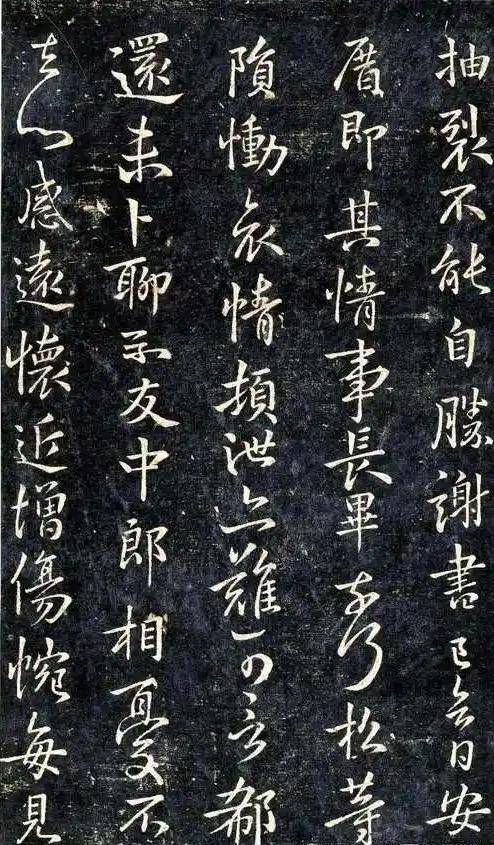 抽裂不能自勝謝書已日安
厝即其情事長畢奈何松等
隕慟哀情頓泄亦難可言郗
還未卜聊示友中郎相憂不
去心感遠懷近增傷惋每見